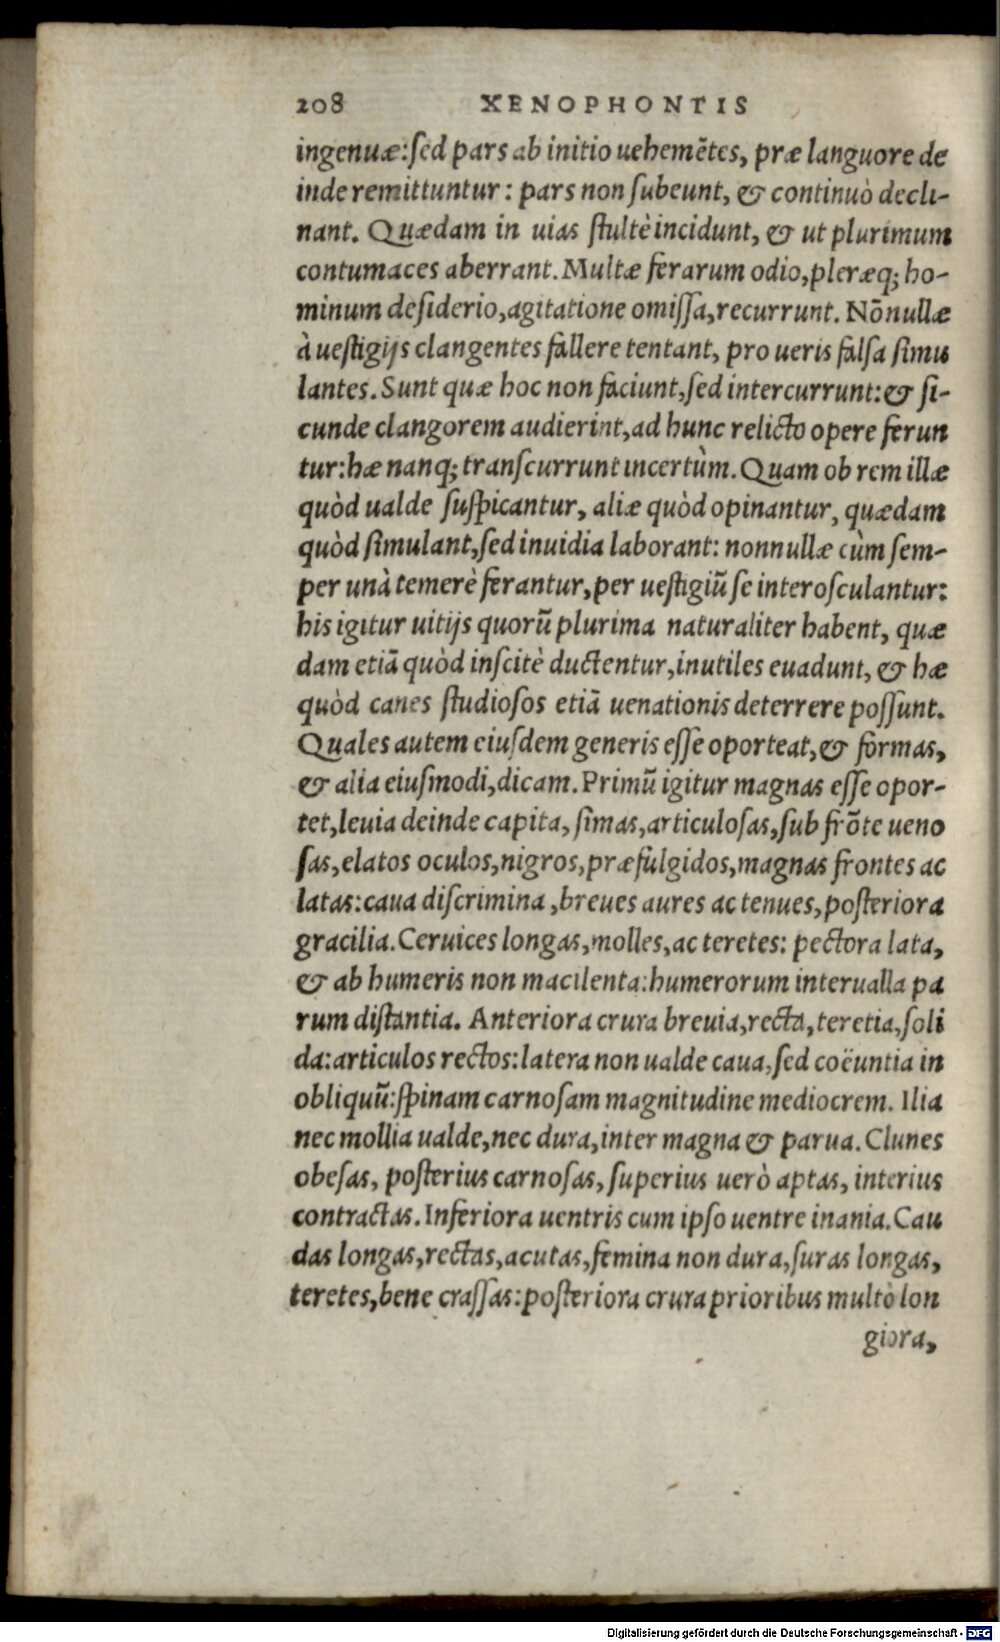 208 XENOPHONTIS
ingenuæ:ſed pars ab initio uehemẽtes, præ languore de
inde remittuntur: pars non ſubeunt, & continuò decli-
nant. Quædam in uias ſtultè incidunt, & ut plurimum
contumaces aberrant. Multæ ferarum odio, pleræq; ho-
minum deſiderio, agitatione omiſſa, recurrunt. Nõnullæ
à ueſtigijs clangentes fallere tentant, pro ueris falſa ſimu
lantes. Sunt quæ hoc non faciunt, ſed intercurrunt: & ſi-
cunde clangorem audierint, ad hunc relicto opere ferun
tur: hæ nanq; tranſcurrunt incertùm. Quam ob rem illæ
quòd ualde ſuſpicantur, aliæ quòd opinantur, quædam
quòd ſimulant, ſed inuidia laborant: nonnullæ cùm ſem-
per unà temerè ferantur, per ueſtigiũ ſe interoſculantur:
his igitur uitijs quorũ plurima naturaliter habent, quæ
dam etiã quòd inſcitè ductentur, inutiles euadunt, & hæ
quòd canes ſtudioſos etiã uenationis deterrere poſſunt.
Quales autem eiuſdem generis eſſe oporteat, & formas,
& alia eiuſmodi, dicam. Primũ igitur magnas eſſe opor-
tet, leuia deinde capita, ſimas, articuloſas, ſub frõte ueno
ſas, elatos oculos, nigros, præfulgidos, magnas frontes ac
latas: caua diſcrimina, breues aures ac tenues, poſteriora
gracilia. Ceruices longas, molles, ac teretes: pectora lata,
& ab humeris non macilenta: humerorum interualla pa
rum diſtantia. Anteriora crura breuia, recta, teretia, ſoli
da: articulos rectos: latera non ualde caua, ſed coëuntia in
obliquũ: ſpinam carnoſam magnitudine mediocrem. Ilia
nec mollia ualde, nec dura, inter magna & parua. Clunes
obeſas, poſterius carnoſas, ſuperius uerò aptas, interius
contractas. Inferiora uentris cum ipſo uentre inania. Cau
das longas, rectas, acutas, femina non dura, ſuras longas,
teretes, bene craſſas: poſteriora crura prioribus multò lon
giora,
Digitalisierung gefördert durch die Deutsche Forschungsgemeinschaft - DFG